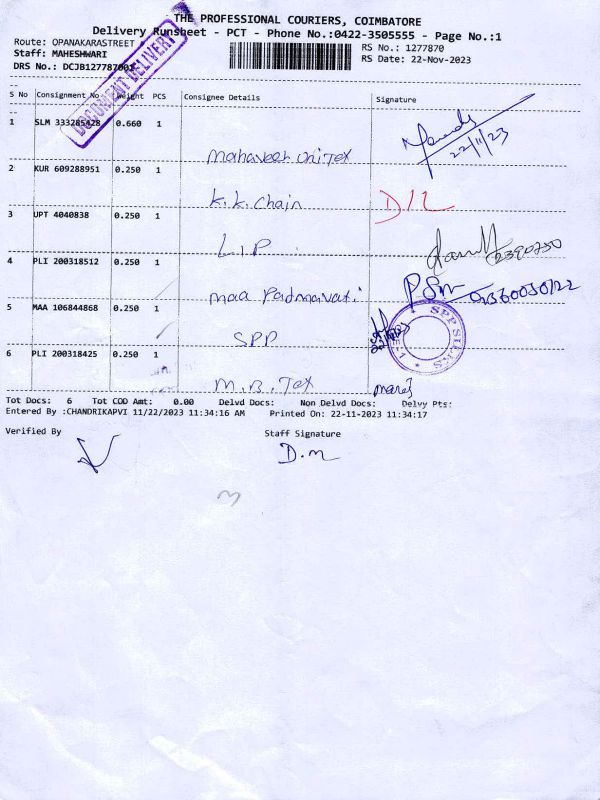 THE PROFESSIONAL COURIERS, COIMBATORE
Delivery Runsheet - PCT - Phone No.:0422-3505555 - Page No.:1
Route: OPANAKARASTREET
RS No.: 1277870
Staff: MAHESHWARI
RS Date: 22-Nov-2023
DRS No.: DCJB1277870
DOCUMENT DELIVERY
S No Consignment No Weight PCS Consignee Details Signature
1 SLM 333285428 0.660 1
22/11/23
Mahaveer Unitex
2 KUR 609288951 0.250 1
K.K. Chain D/L
3 UPT 4040838 0.250 1
L I P
4 PLI 200318512 0.250 1
Maa Padmavati
5 MAA 106844868 0.250 1
SPP SPP SILKS
6 PLI 200318425 0.250 1
M.B. Tex
Tot Docs: 6 Tot COD Amt: 0.00 Delvd Docs: Non Delvd Docs: Delvy Pts:
Entered By :CHANDRIKAPVI 11/22/2023 11:34:16 AM Printed On: 22-11-2023 11:34:17
Verified By Staff Signature
D.M